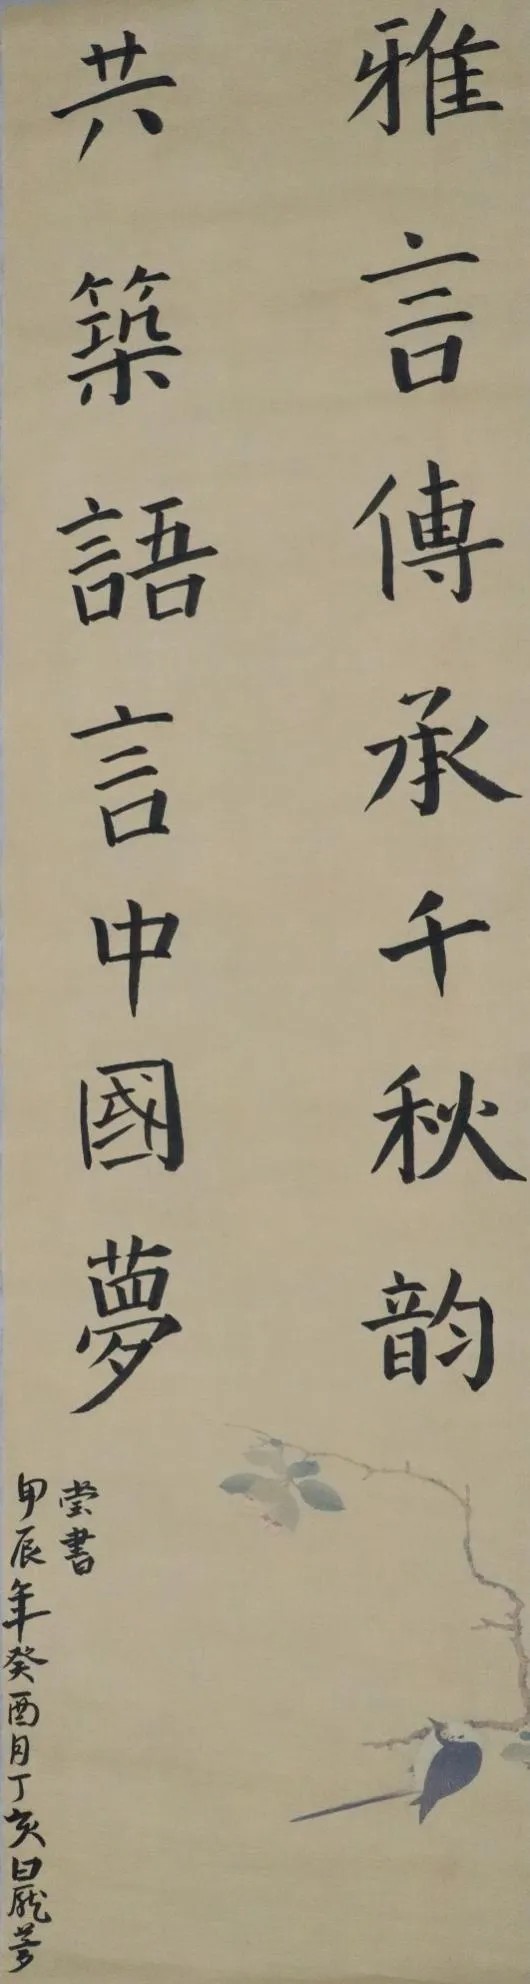 雅言傳承千秋韵
共築語言中國夢
甲辰年癸酉月丁亥日龐夢
莹書